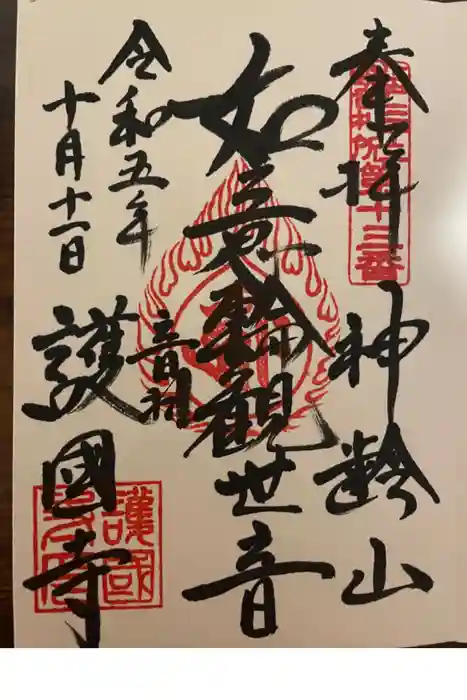 奉拝
神齢山
如意輪観世音
音羽
護國寺
令和五年
十月十一日
第十三番